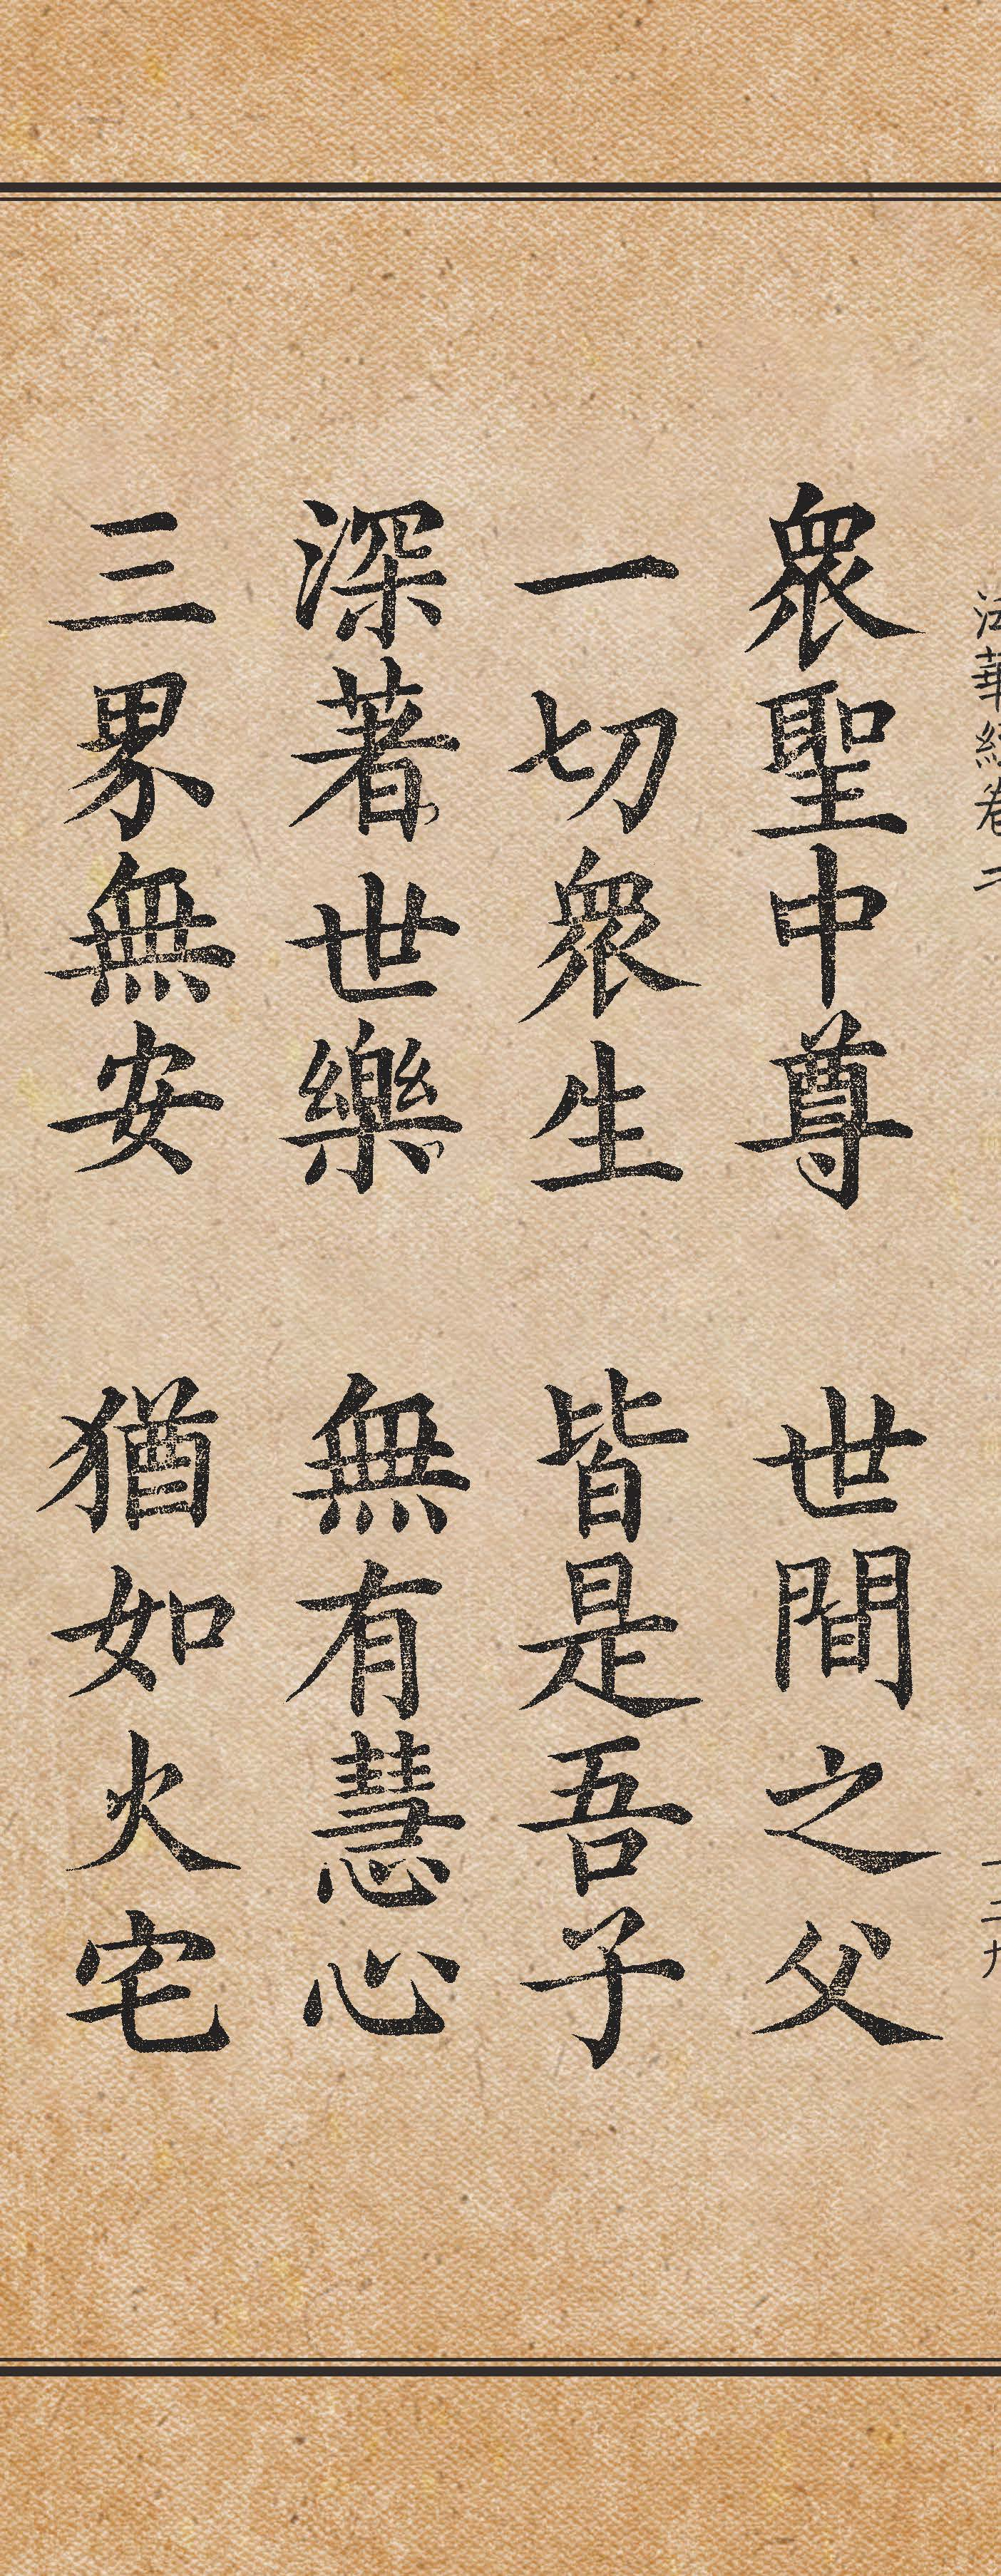 法華經卷二 一二九
衆聖中尊 世間之父
一切衆生 皆是吾子
深著世樂 無有慧心
三界無安 猶如火宅